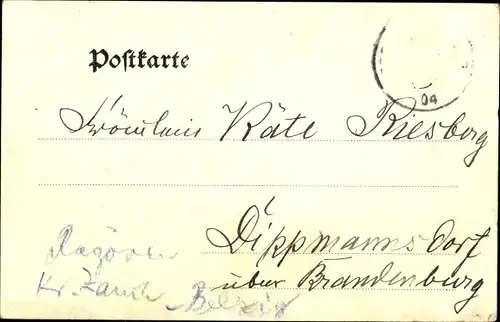 Postkarte
04
Fräulein Käte Riesberg
Dippmannsdorf
über Brandenburg
Ragösen
Kr. Zauch-Belzig